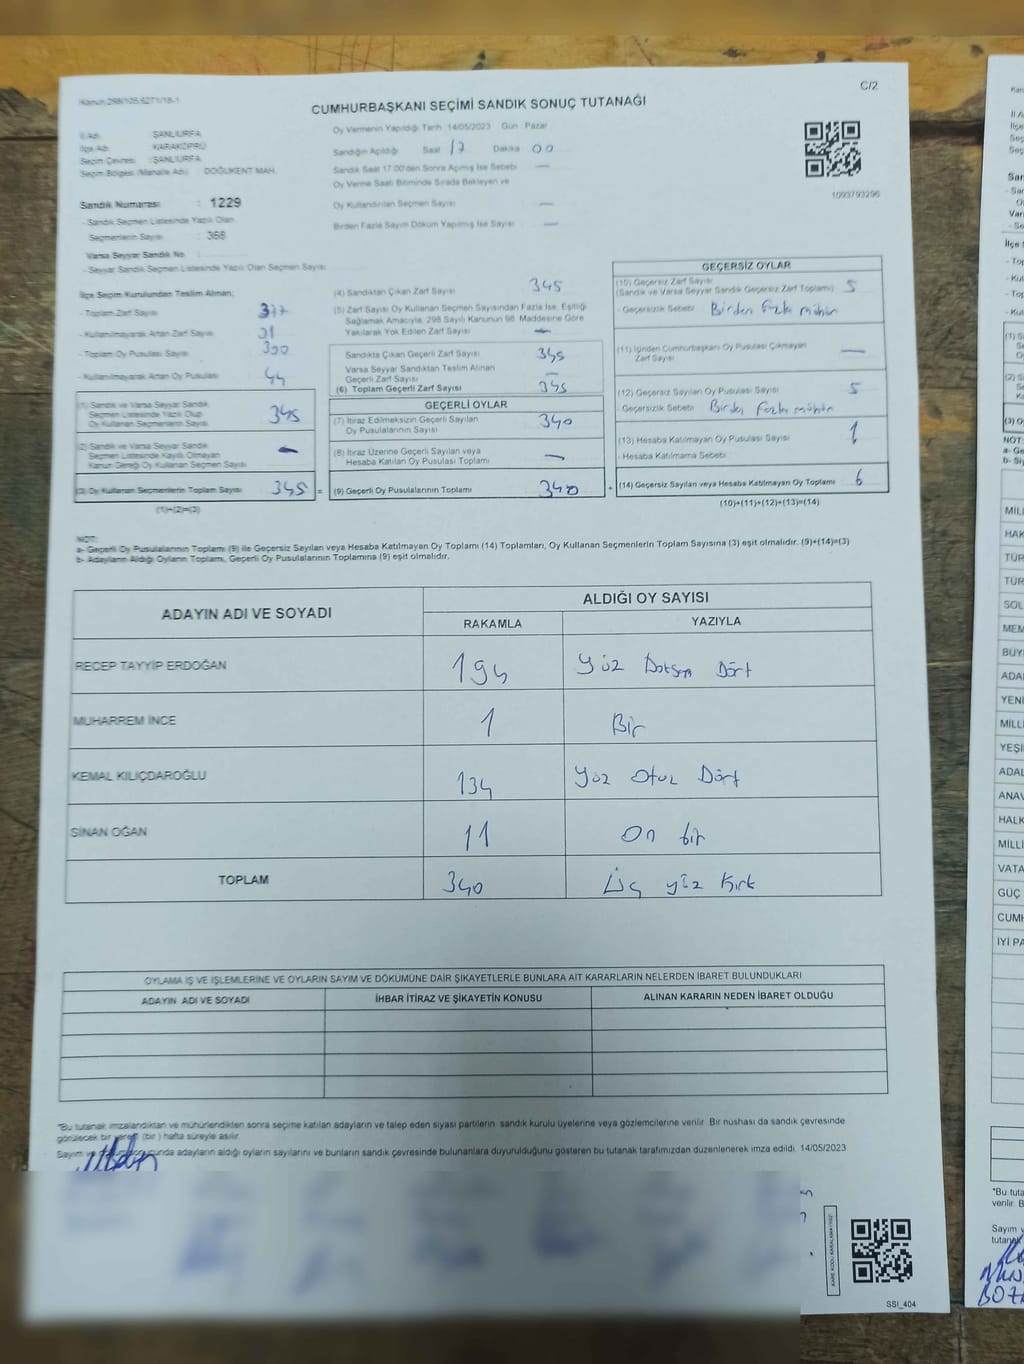 Kanun 298/105,6271/18-1
C/2
CUMHURBAŞKANI SEÇİMİ SANDIK SONUÇ TUTANAĞI
İl Adı ŞANLIURFA
İlçe Adı KARAKÖPRÜ
Seçim Çevresi : ŞANLIURFA
Seçim Bölgesi (Mahalle Adı) DOĞUKENT MAH.
Oy Vermenin Yapıldığı Tarih 14/05/2023 Gün Pazar
Sandığın Açıldığı Saat 17 Dakika 00
Sandık Saat 17:00'den Sonra Açılmış İse Sebebi —
Oy Verme Saati Bitiminde Sırada Bekleyen ve
Oy Kullandırılan Seçmen Sayısı —
Birden Fazla Sayım Döküm Yapılmış İse Sayısı —
1093793296
Sandık Numarası : 1229
- Sandık Seçmen Listesinde Yazılı Olan
Seçmenlerin Sayısı : 368
Varsa Seyyar Sandık No
- Seyyar Sandık Seçmen Listesinde Yazılı Olan Seçmen Sayısı
İlçe Seçim Kurulundan Teslim Alınan;
- Toplam Zarf Sayısı 377
- Kullanılmayarak Artan Zarf Sayısı
- Toplam Oy Pusulası Sayısı
- Kullanılmayarak Artan Oy Pusulası 44
(1) Sandık ve Varsa Seyyar Sandık
Seçmen Listesinde Yazılı Olup
Oy Kullanan Seçmenlerin Sayısı 345
(2) Sandık ve Varsa Seyyar Sandık
Seçmen Listesinde Kayıtlı Olmayan
Kanun Gereği Oy Kullanan Seçmen Sayısı —
(3) Oy Kullanan Seçmenlerin Toplam Sayısı 345 =
(1)+(2)=(3)
(4) Sandıktan Çıkan Zarf Sayısı 345
(5) Zarf Sayısı Oy Kullanan Seçmen Sayısından Fazla İse, Eşitliği
Sağlamak Amacıyla, 298 Sayılı Kanunun 98. Maddesine Göre
Yakılarak Yok Edilen Zarf Sayısı —
Sandıkta Çıkan Geçerli Zarf Sayısı 345
Varsa Seyyar Sandıktan Teslim Alınan
Geçerli Zarf Sayısı —
(6) Toplam Geçerli Zarf Sayısı 345
GEÇERLİ OYLAR
(7) İtiraz Edilmeksizin Geçerli Sayılan
Oy Pusulalarının Sayısı 340
(8) İtiraz Üzerine Geçerli Sayılan veya
Hesaba Katılan Oy Pusulası Toplamı —
(9) Geçerli Oy Pusulalarının Toplamı 340 +
GEÇERSİZ OYLAR
(10) Geçersiz Zarf Sayısı
(Sandık ve Varsa Seyyar Sandık Geçersiz Zarf Toplamı) 5
- Geçersizlik Sebebi Birden fazla mühür
(11) İçinden Cumhurbaşkanı Oy Pusulası Çıkmayan
Zarf Sayısı —
(12) Geçersiz Sayılan Oy Pusulası Sayısı 5
- Geçersizlik Sebebi Birden fazla mühür
(13) Hesaba Katılmayan Oy Pusulası Sayısı 1
- Hesaba Katılmama Sebebi
(14) Geçersiz Sayılan veya Hesaba Katılmayan Oy Toplamı 6
(10)+(11)+(12)+(13)=(14)
NOT:
a- Geçerli Oy Pusulalarının Toplamı (9) ile Geçersiz Sayılan veya Hesaba Katılmayan Oy Toplamı (14) Toplamları, Oy Kullanan Seçmenlerin Toplam Sayısına (3) eşit olmalıdır. (9)+(14)=(3)
b- Adayların Aldığı Oyların Toplamı, Geçerli Oy Pusulalarının Toplamına (9) eşit olmalıdır.
ADAYIN ADI VE SOYADI
ALDIĞI OY SAYISI
RAKAMLA YAZIYLA
RECEP TAYYİP ERDOĞAN 194 Yüz Doksan Dört
MUHARREM İNCE 1 Bir
KEMAL KILIÇDAROĞLU 134 Yüz Otuz Dört
SİNAN OĞAN 11 On bir
TOPLAM 340 Üç yüz Kırk
OYLAMA İŞ VE İŞLEMLERİNE VE OYLARIN SAYIM VE DÖKÜMÜNE DAİR ŞİKAYETLERLE BUNLARA AİT KARARLARIN NELERDEN İBARET BULUNDUKLARI
ADAYIN ADI VE SOYADI İHBAR İTİRAZ VE ŞİKAYETİN KONUSU ALINAN KARARIN NEDEN İBARET OLDUĞU
"Bu tutanak imzalandıktan ve mühürlendikten sonra seçime katılan adayların ve talep eden siyasi partilerin sandık kurulu üyelerine veya gözlemcilerine verilir. Bir nüshası da sandık çevresinde
görülecek bir yere (bir) hafta süreyle asılır.
Sayım ve adayların aldığı oyların sayılarını ve bunların sandık çevresinde bulunanlara duyurulduğunu gösteren bu tutanak tarafımızdan düzenlenerek imza edildi. 14/05/2023
SSİ_404
İl A
İlçe
Seç
Seç
San
Var
İlçe S
NOT:
MİL
HAK
TÜR
TÜR
SOL
MEM
BÜY
ADA
YENİ
MİLL
YEŞİ
ADAL
ANAV
HALK
MİLLİ
VATA
GÜÇ
CUMH
İYİ PA
"Bu tuta
verilir. B
Sayım v
tutanak